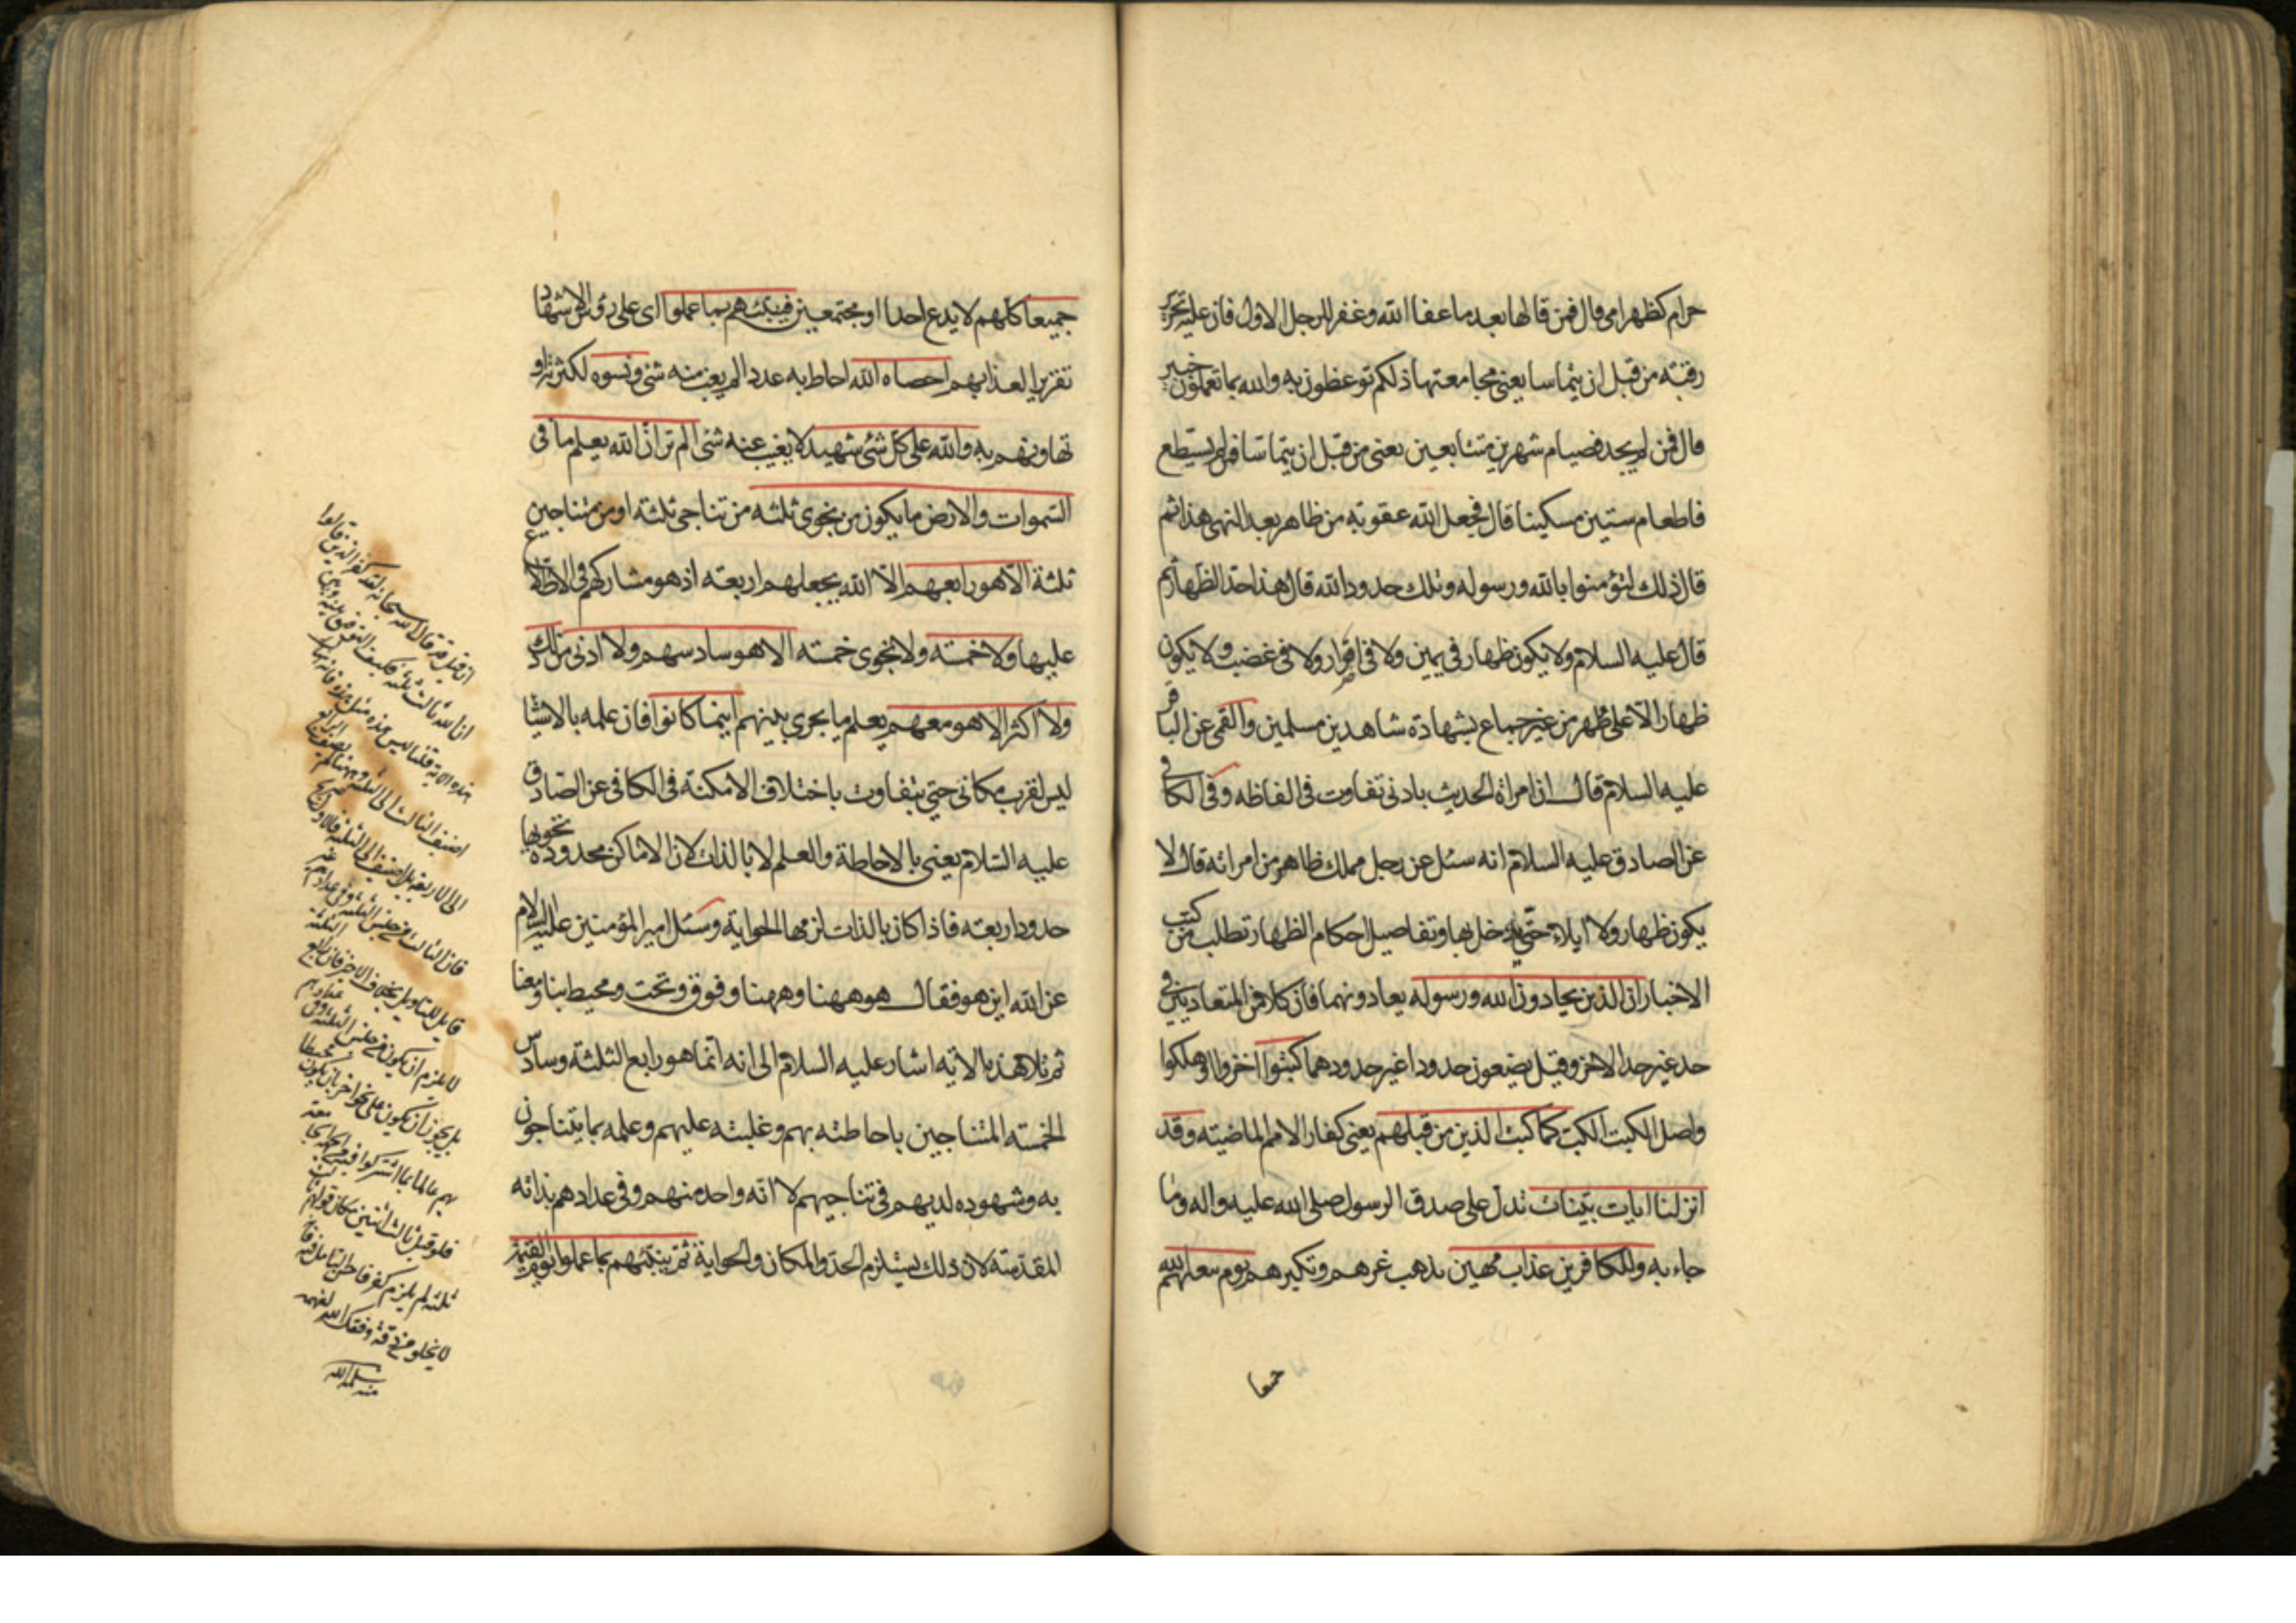 حرام كظهر امي قال فمن قالها بعد ما عفا الله وغفر للرجل الاول فان عليه تحرير
رقبته من قبل ان يتماسا يعني مجامعتها ذلكم توعظون به والله بما تعملون خبير
قال فمن لم يجد فصيام شهرين متتابعين يعني من قبل ان يتماسا فمن لم يستطع
فاطعام ستين مسكينا قال فجعل الله عقوبته من ظاهر بعد النهي هذا ثم
قال ذلك لتؤمنوا بالله ورسوله وتلك حدود الله قال هذا حد الظهار ثم
قال عليه السلام ولا يكون ظهار في يمين ولا في اضرار ولا في غضب ولا يكون
ظهار الا على طهر من غير جماع بشهادة شاهدين مسلمين والقمي عن الباقر
عليه السلام قال ان امراة الحديث بادنى تفاوت في الفاظه وفي الكافي
عن الصادق عليه السلام انه سئل عن رجل مملك ظاهر من امراته قال لا
يكون ظهار ولا ايلاء حتى يدخل بها وتفاصيل احكام الظهار تطلب من كتب
الاخبار ان الذين يحادون الله ورسوله يعادونهما فان كلا من المتعاديين في
حد غير حد الاخر وقيل يضعون حدودا غير حدودهما كبتوا اخزوا او هلكوا
واصل الكبت الكب كما كبت الذين من قبلهم يعني كفار الامم الماضيته وقد
انزلنا ايات بينات تدل على صدق الرسول صلى الله عليه واله وما
جاء به وللكافرين عذاب مهين يذهب عزهم وتكبرهم يوم يبعثهم الله
جميعا
جميعا كلهم لا يدع احدا او مجتمعين فينبئهم بما عملوا اى على رؤس الاشهاد
تقريرا لعذابهم احصاه الله احاط به عددا لم يغب منه شئ ونسوه لكثرته او
تهاونهم به والله على كل شئ شهيد لا يغيب عنه شئ الم تر ان الله يعلم ما في
السموات والارض ما يكون من نجوى ثلثه من تناجى ثلثة او من متناجين
ثلثة الا هو رابعهم الا الله يجعلهم اربعته اذ هو مشاركهم في الاطلاع
عليها ولا خمسته ولا نجوى خمسته الا هو سادسهم ولا ادنى من ذلك
ولا اكثر الا هو معهم يعلم ما يجرى بينهم اينما كانوا فان علمه بالاشيا
ليس لقرب مكانى حتى يتفاوت باختلاف الامكنة في الكافي عن الصادق
عليه السلام يعني بالاحاطة والعلم لا بالذات لان الاماكن محدودة تحويها
حدود اربعته فاذا كان بالذات لزمها الحوايته وسئل امير المؤمنين عليه السلام
عن الله اين هو فقال هو ههنا وههنا وفوق وتحت ومحيط بنا ومعنا
ثم تلا هذه الاية اشار عليه السلام الى انه انما هو رابع الثلثة وسادس
الخمسته المتناجين باحاطته بهم وغلبته عليهم وعلمه بما يتناجون
به وشهوده لديهم في تناجيهم لا انه واحد منهم وفي عدادهم بذاته
المقدسته لان ذلك يستلزم الحد والمكان والحواية ثم ينبئهم بما عملوا يوم القيمة
ان قيل قد قال الله سبحانه لقد كفر الذين قالوا
ان الله ثالث ثلثة فكيف التوفيق بينه وبين
هذه الاية قلنا ليس هذه مثل هذه فانه انما
اضيف الثالث الى الثلثة وههنا لم يضف الرابع
الى الاربعة بل اضيف الى الثلثة
فان الثالث من جنس الثلثة وفي عدادهم
لا يلزم ان يكون من جنس الثلثة
بل يجوز ان يكون على نحو اخر بان يكون محيطا
بهم عالما بما اشتركوا فيه
فلو قيل ثالث اثنين مكان قولهم
ثلثة لم يلزم كفر
لا يخلو من دقة وفقك الله لفهمه
منه سلمه الله